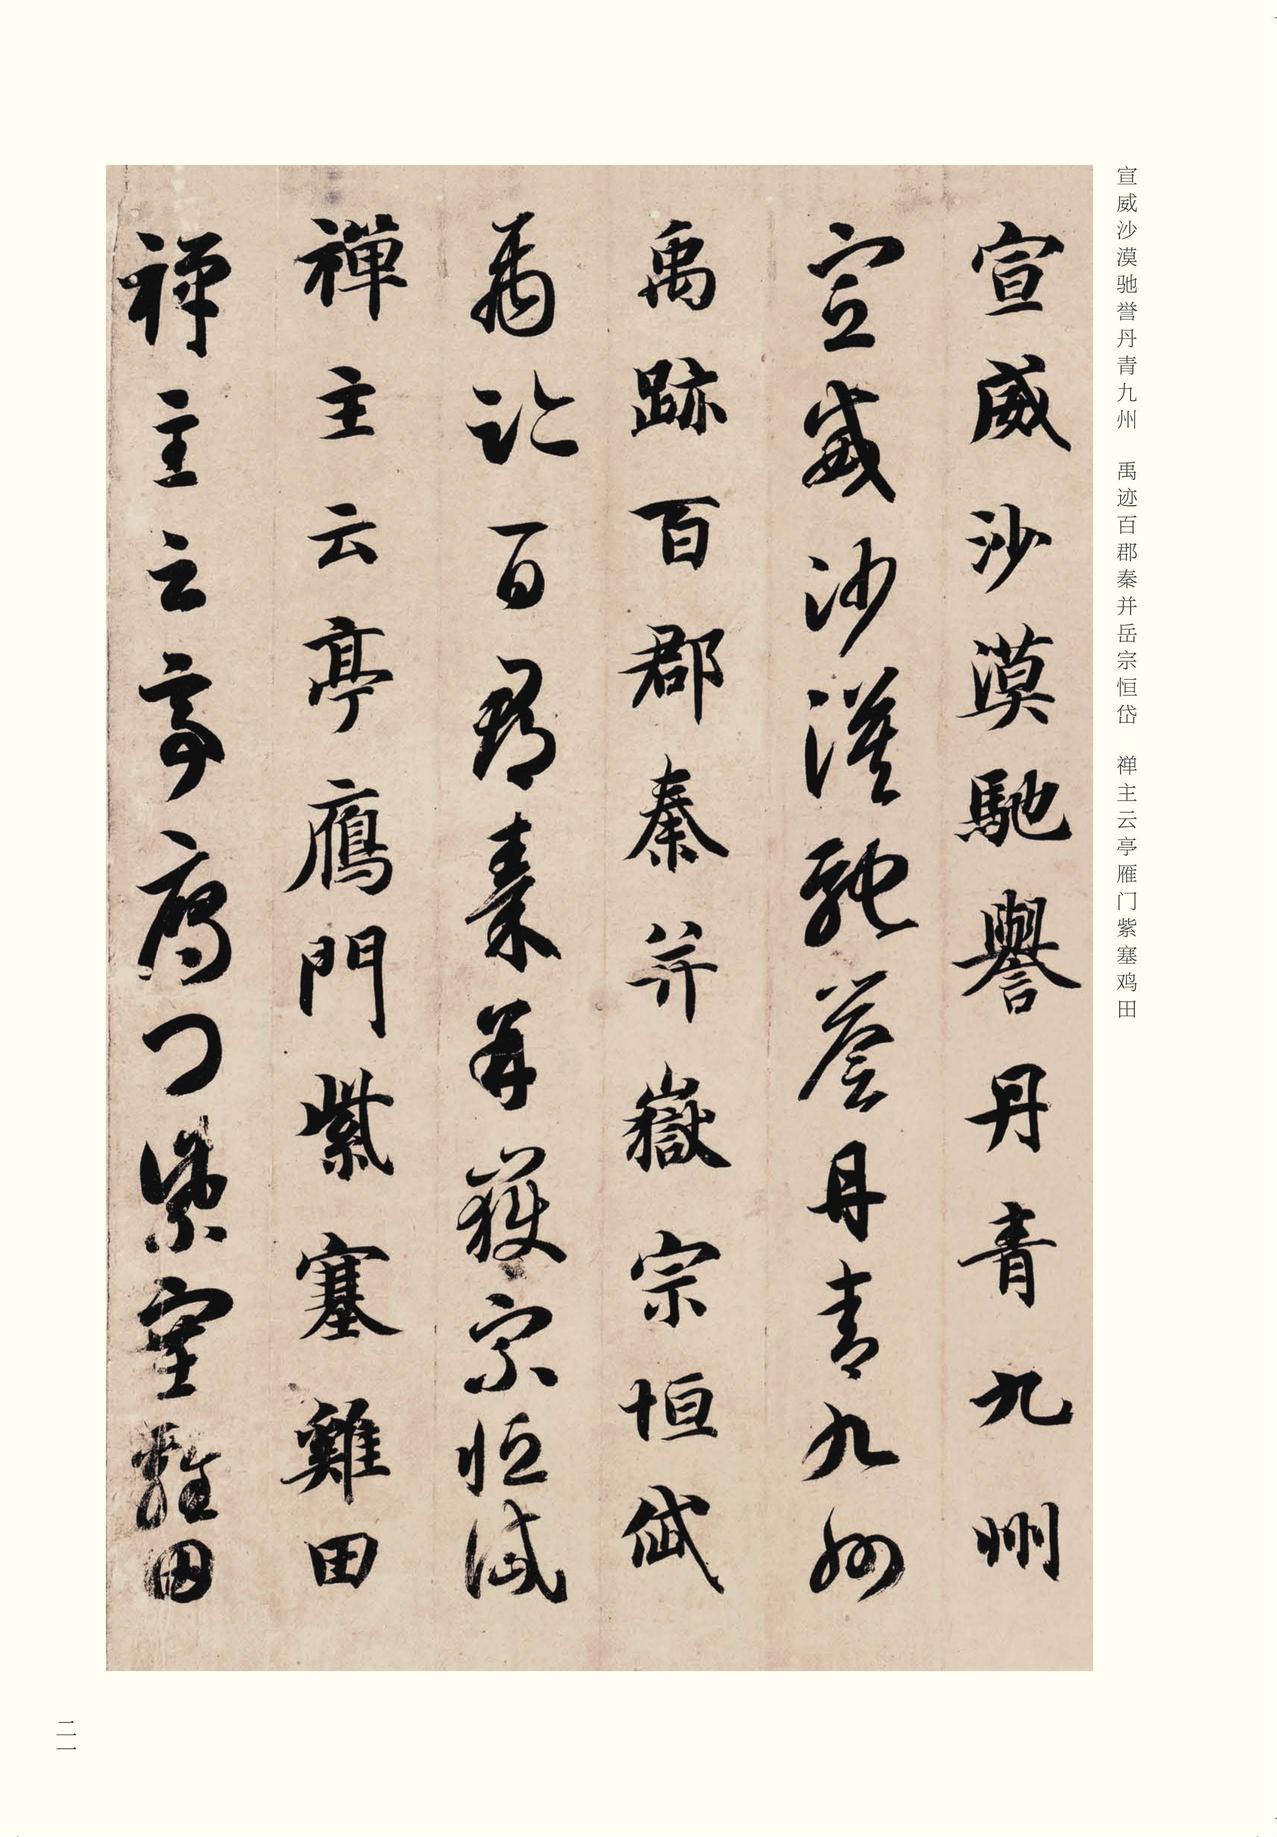 宣威沙漠驰誉丹青九州　禹迹百郡秦并岳宗恒岱　禅主云亭雁门紫塞鸡田
宣威沙漠馳譽丹青九州
宣威沙漠馳譽丹青九州
禹跡百郡秦并嶽宗恒岱
禹跡百郡秦并嶽宗恒岱
禪主云亭鴈門紫塞雞田
禪主云亭鴈門紫塞雞田
二一